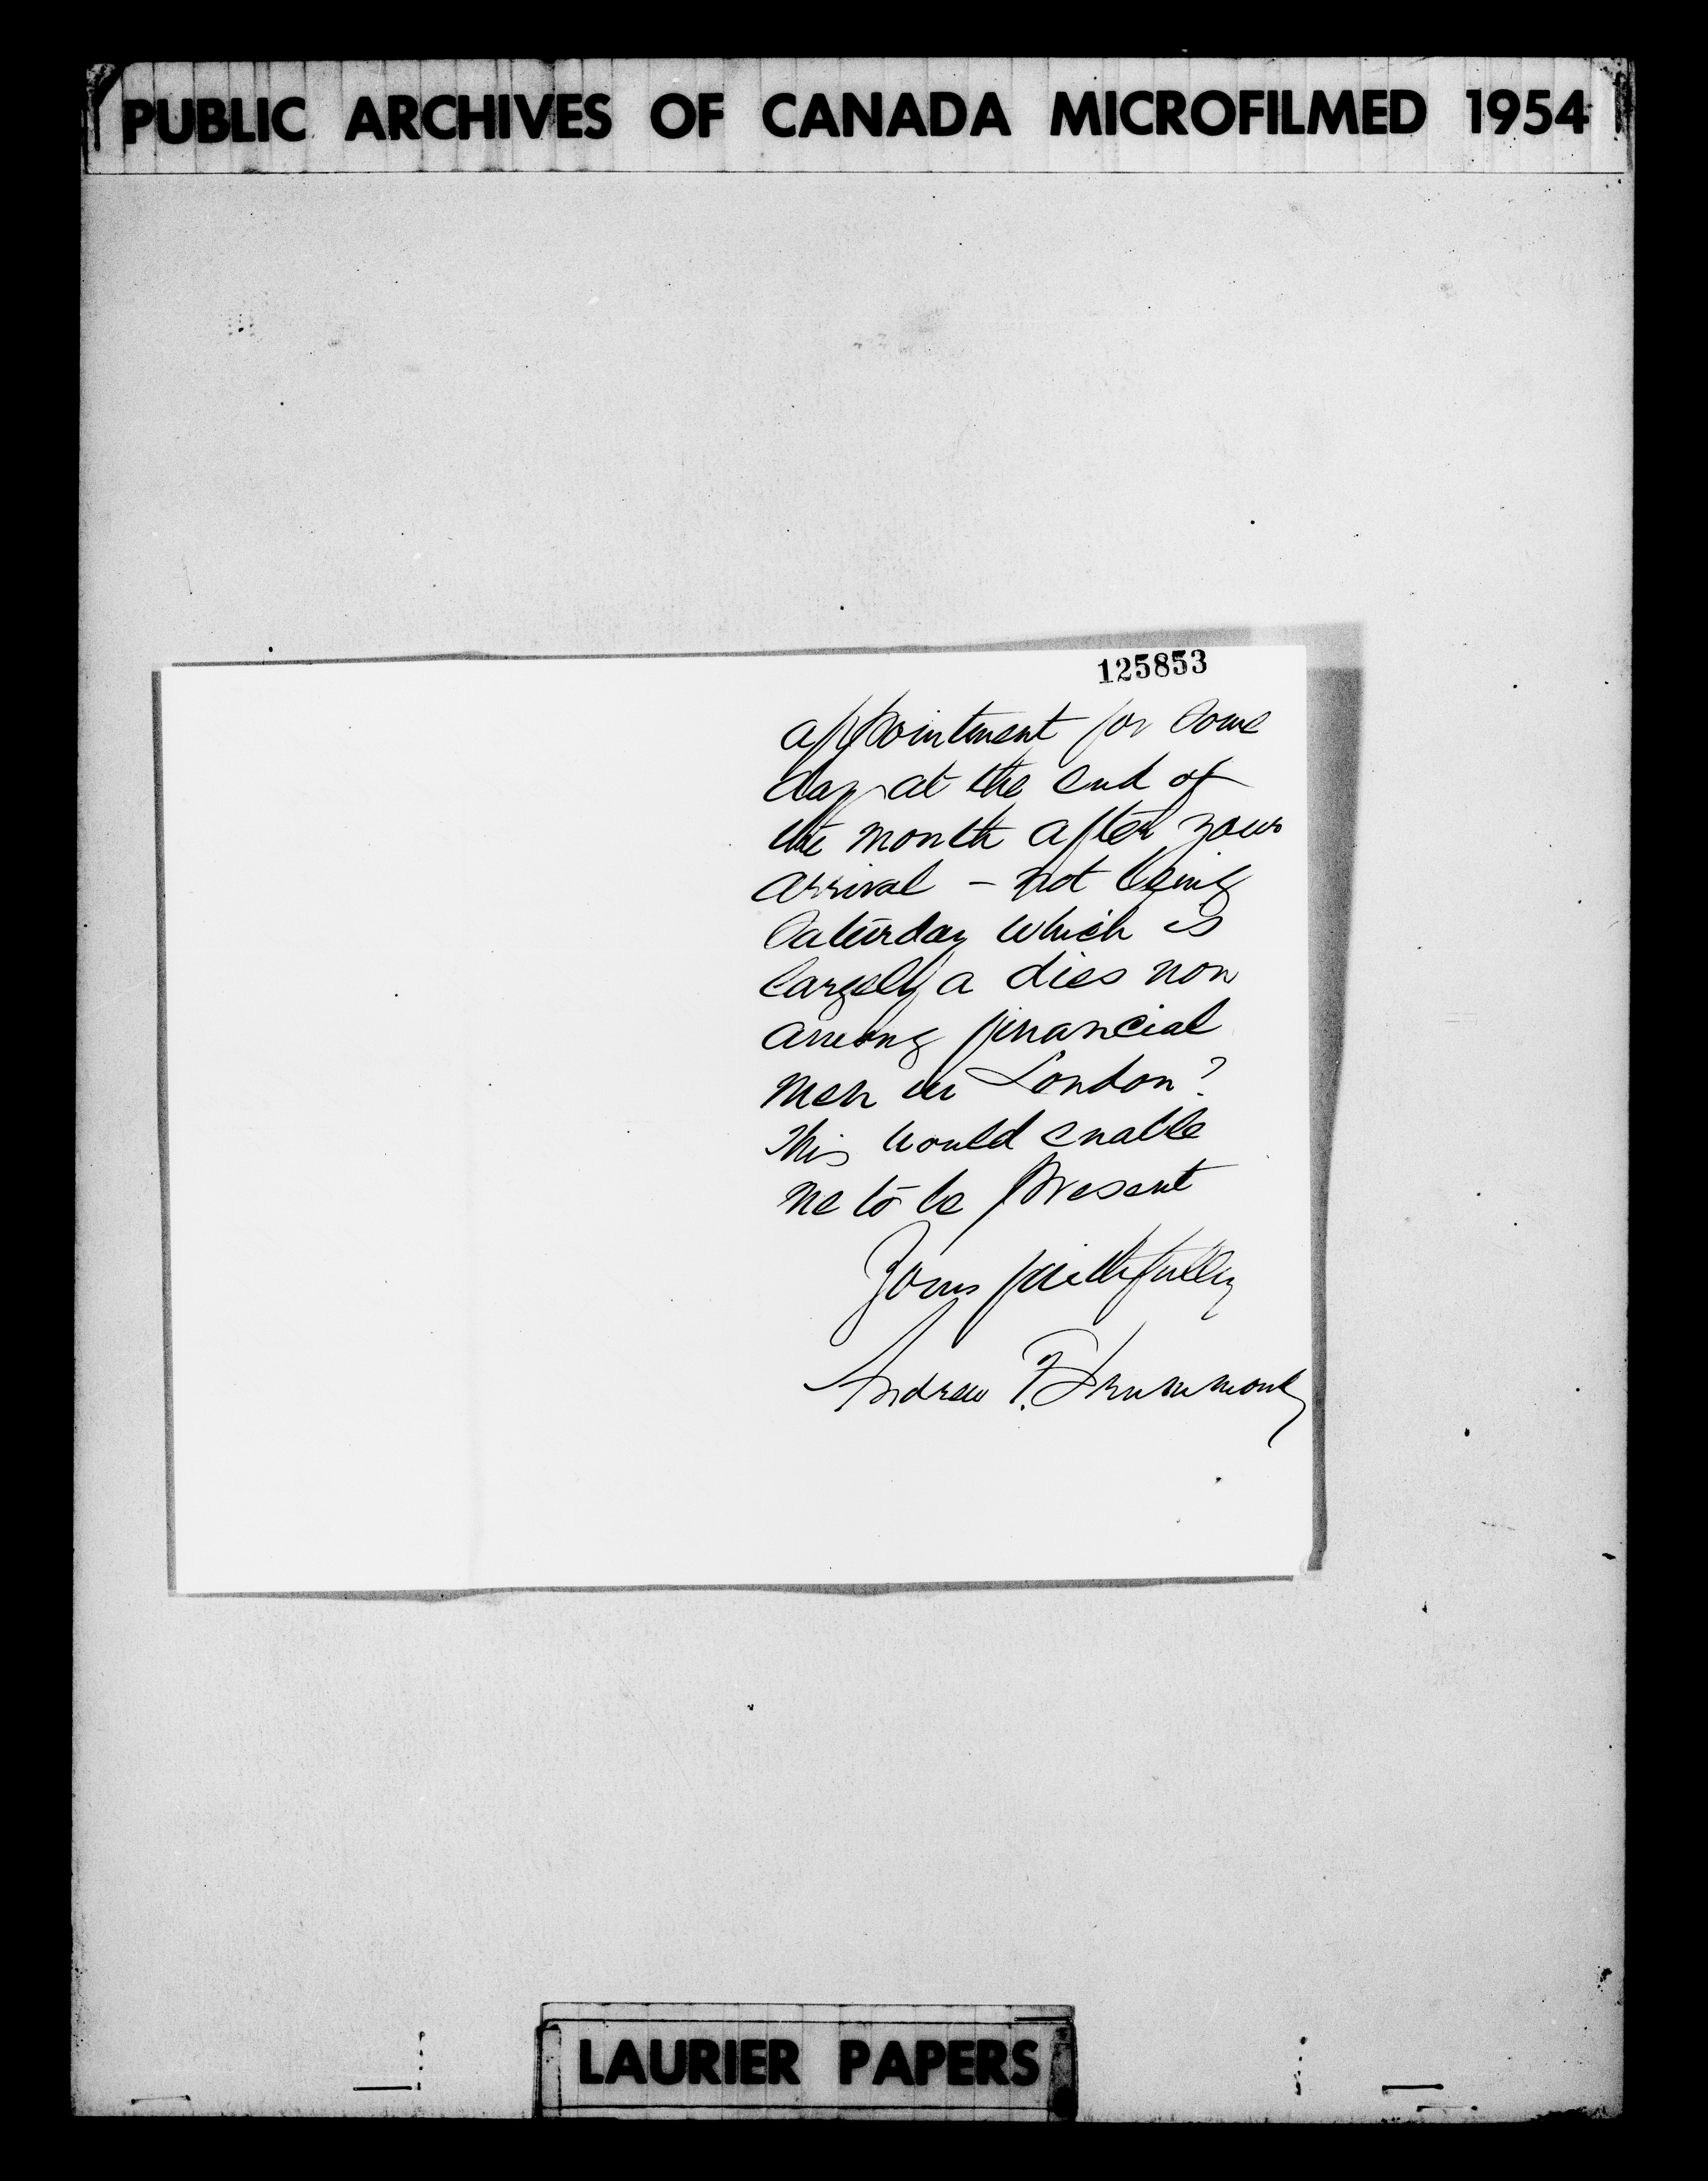 PUBLIC ARCHIVES OF CANADA MICROFILMED 1954
125853
appointment for some
day at the end of
the month after your
arrival – not being
Saturday which is
largely a dies non
among financial
men in London?
This would enable
me to be present
Yours faithfully
Andrew T. Drummond
LAURIER PAPERS